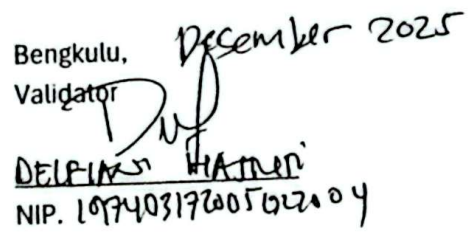 Bengkulu, Desember 2025
Validator
DELFIANI HAMERI
NIP. 197403172005022004